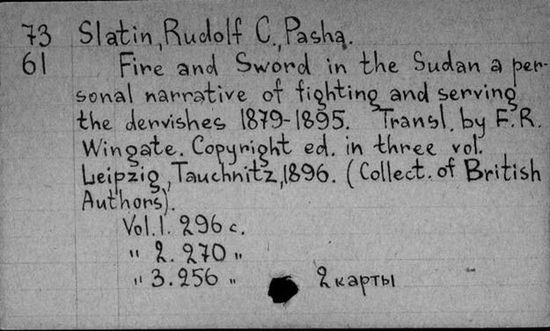 73 Slatin, Rudolf C., Pasha.
61 Fire and Sword in the Sudan a per-
sonal narrative of fighting and serving
the dervishes 1879-1895. Transl. by F.R.
Wingate. Copyright ed. in three vol.
Leipzig, Tauchnitz, 1896. (Collect. of British
Authors).
Vol. 1. 296 c.
" 2. 270 "
" 3. 256 " 2 карты